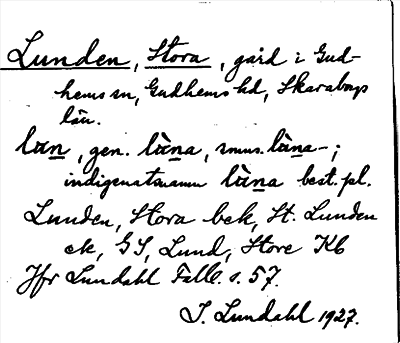 Lunden, Stora, gård i Gud-
hems sn, Gudhems hd, Skaraborgs
län.
lun, gen. låna, smns. låna-;
indigenatsnamn låna best. pl.
Lunden, Stora bek, St. Lunden
ek, GS, Lund, Store Kb
Jfr Lundahl Falb. s. 57.
I. Lundahl 1927.